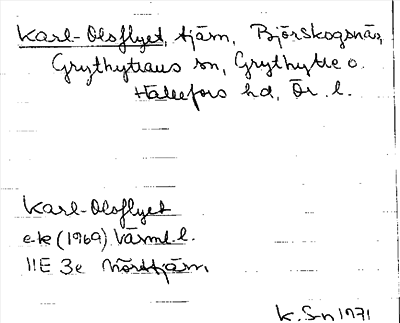 Karl-Olsflyet, tjärn, Björskogsnäs,
Grythyttans sn, Grythytte o.
Hällefors hd, Ör. l.
Karl-Olsflyet
e-k (1969) Värml. l.
11E 3e Norrtjärn,
K.S-n 1971